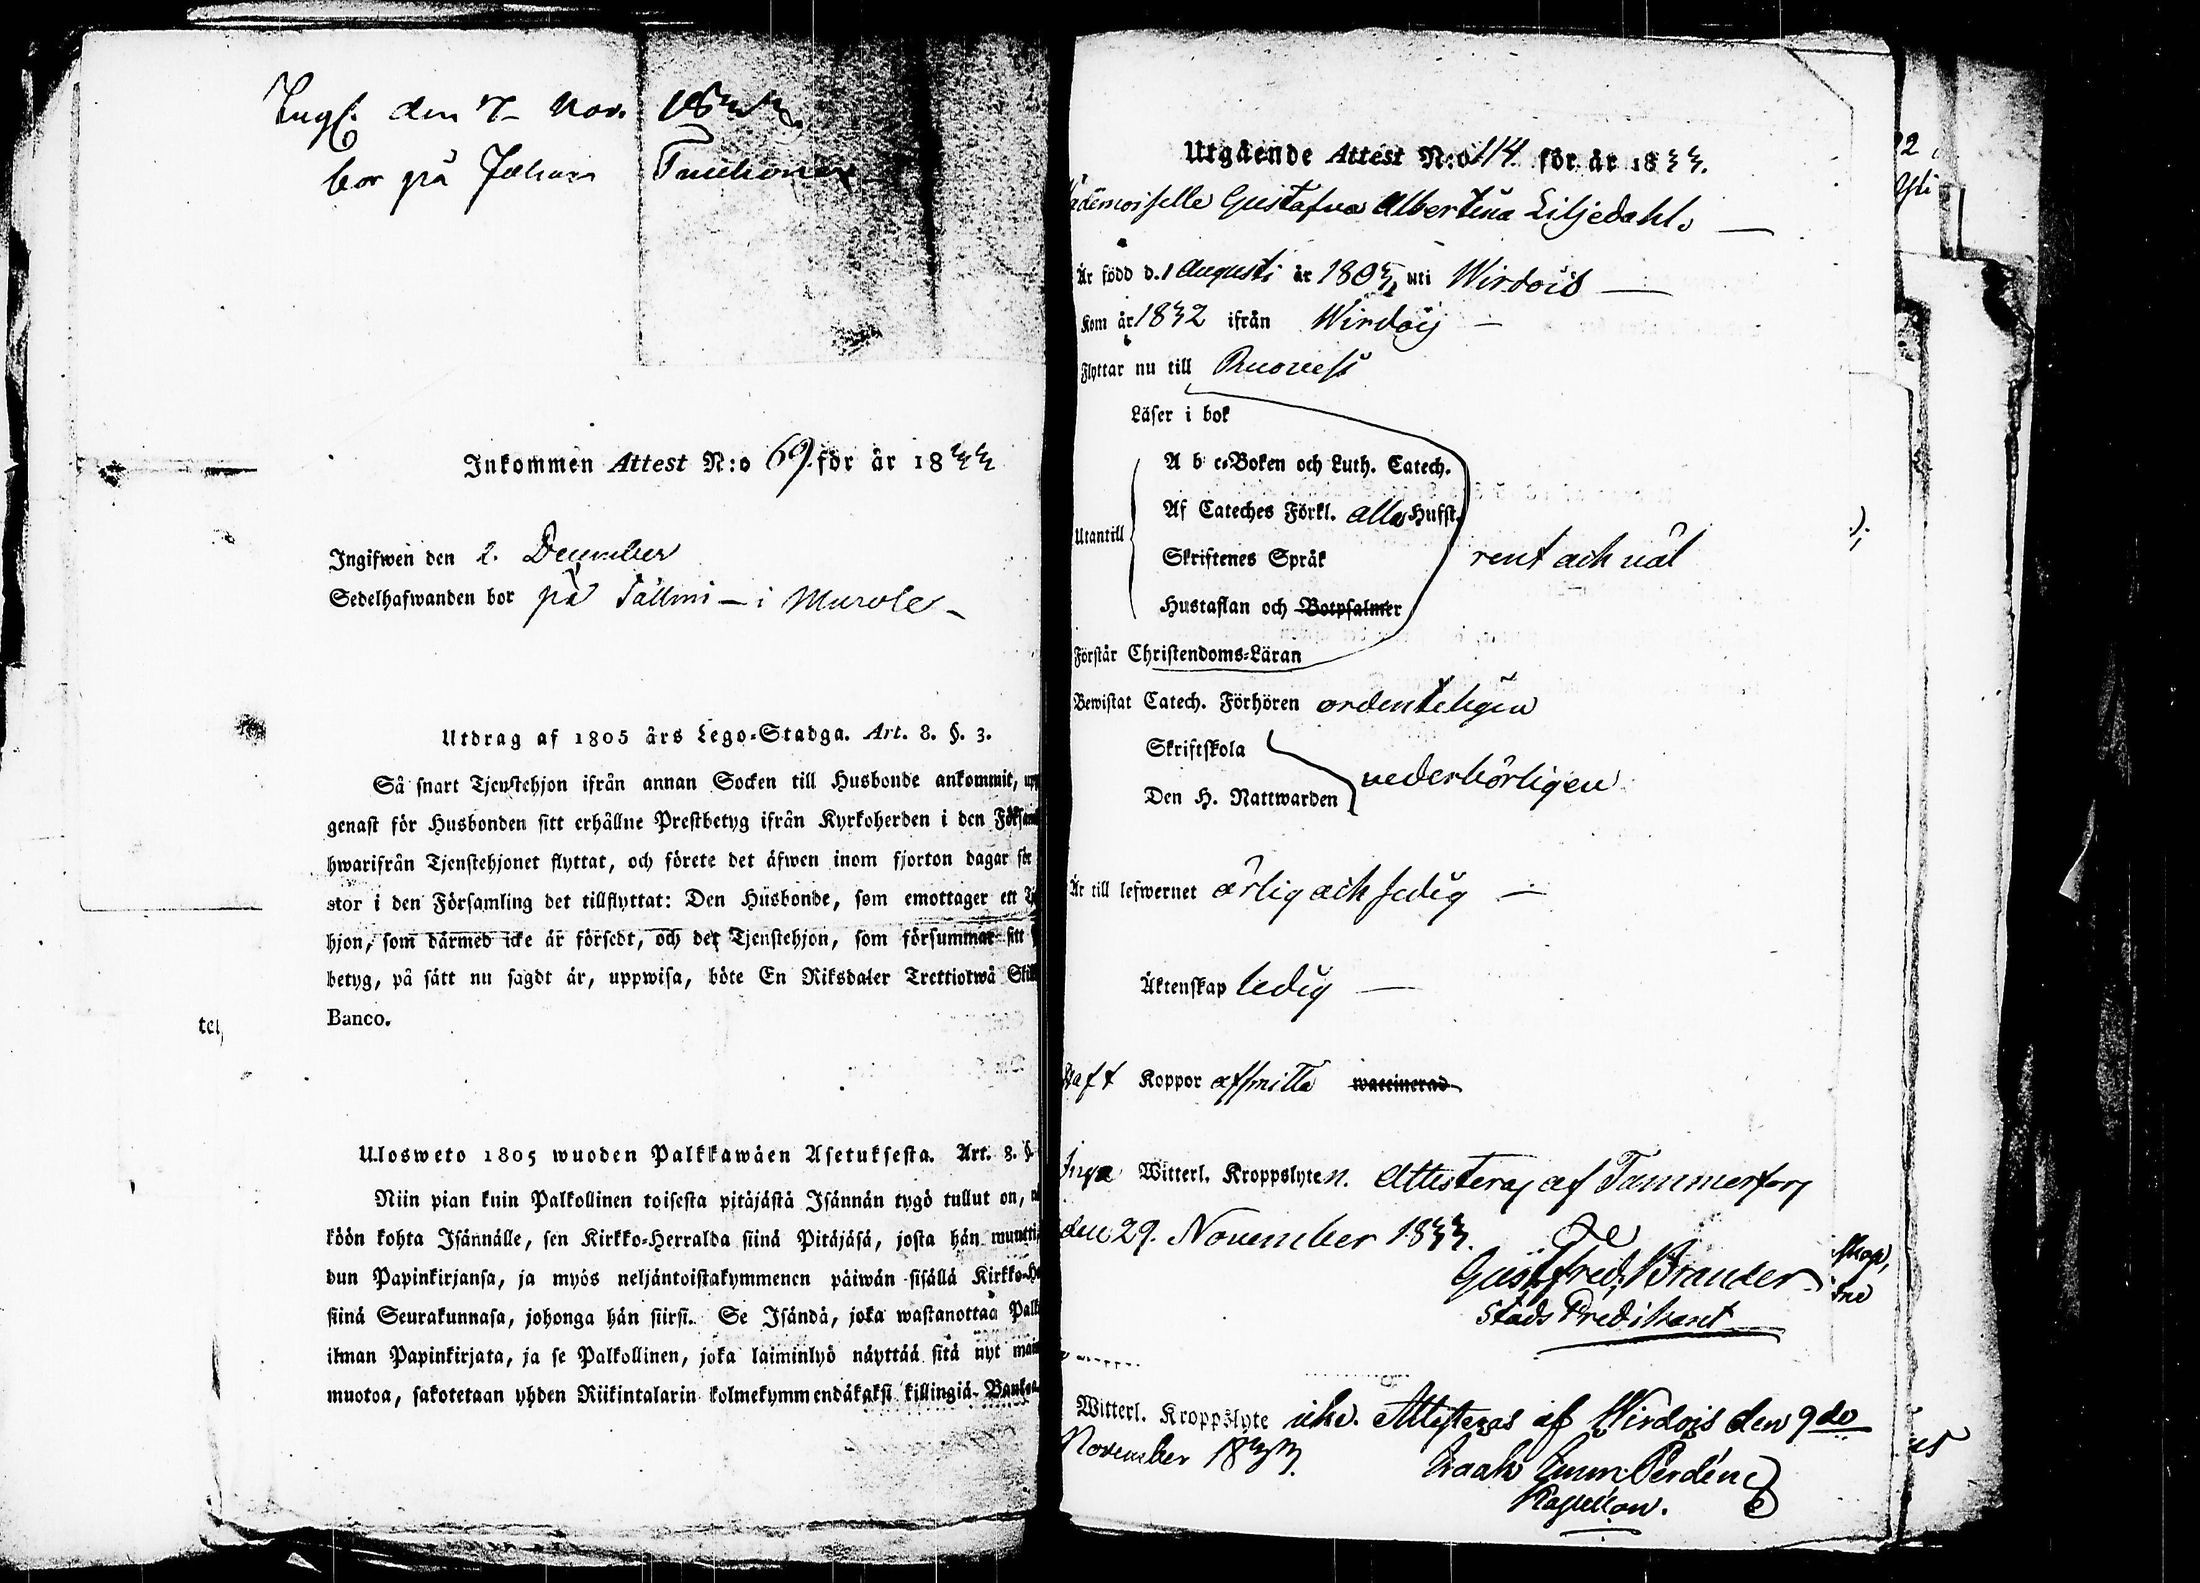 Ingf. den 7 Nov. 1833
bor på Johan
Inkommen Attest N:o 69. för år 1833
Ingifwen den 2. December
Sedelhafwanden bor på Tällmi — i Murole —
Utdrag af 1805 års Lego-Stadga. Art. 8. §. 3.
Så snart Tjenstehjon ifrån annan Socken till Husbonde ankommit,
genast för Husbonden sitt erhållne Prestbetyg ifrån Kyrkoherden i den
hwarifrån Tjenstehjonet flyttat, och förete det äfwen inom fjorton dagar för
stor i den Församling det tillflyttat: Den Husbonde, som emottager ett
hjon, som därmed icke är försedt, och det Tjenstehjon, som försummar sitt
betyg, på sätt nu sagdt är, uppwisa, böte En Riksdaler Trettiotwå
Banco.
ter,
Ulosweto 1805 wuoden Palkkawäen Asetuksesta. Art. 8. §.
Niin pian kuin Palkollinen toisesta pitäjästä Isännän tygö tullut on,
köön kohta Isännälle, sen Kirkko-Herralda siinä Pitäjäsä, josta hän muutti
dun Papinkirjansa, ja myös neljäntoistakymmenen päiwän sisällä Kirkko-
siinä Seurakunnasa, johonga hän siirsi. Se Isändä, joka wastanottaa
ilman Papinkirjata, ja se Palkollinen, joka laiminlyö näyttää sitä nyt
muotoa, sakotetaan yhden Riikintalarin kolmekymmendäkaksi killingiä
Utgående Attest N:o 114. för år 1833.
Mademoiselle Gustafva Albertina Liljedahl. —
Är född d. 1 Augusti år 1803, uti Wirdois —
Kom år 1832 ifrån Wirdois —
Flyttar nu till Ruovesi
Läser i bok
A b c-Boken och Luth. Catech.
Af Cateches Förkl. alla Hufst.
Utantill Skriftenes Språk rent och väl
Hustaflan och Botpsalmer
Förstår Christendoms-Läran
Bewistat Catech. Förhören ordenteligen
Skriftskola
Den H. Nattwarden vederbörligen
Är till lefwernet ärlig och sedig —
Äktenskap ledig —
Haft Koppor afsmitta waccinerad
Inga Witterl. Kroppslyten. Attesteras af Tammerfors
den 29. November 1833.
Gust. Fred. Brander
Stads Predikant
Witterl. Kroppslyte icke. Attesteras af Wirdois den 9de
November 1833.
Isaak Emm: Perdén
Kapellan.